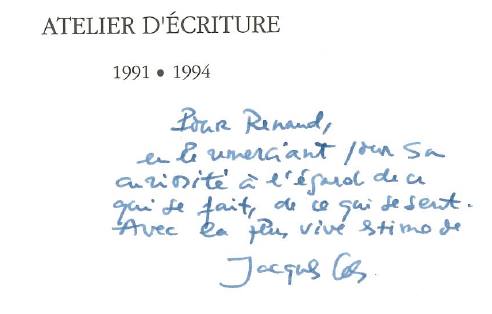 ATELIER D'ÉCRITURE
1991 • 1994
Pour Renaud,
en le remerciant pour sa
curiosité à l'égard de ce
qui se fait, de ce qui se sent.
Avec la plus vive estime de
Jacques